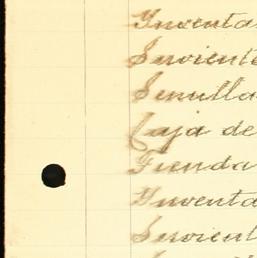 Inventa
Sirvient
Semilla
Caja de
Tienda
Inventa
Sirvient